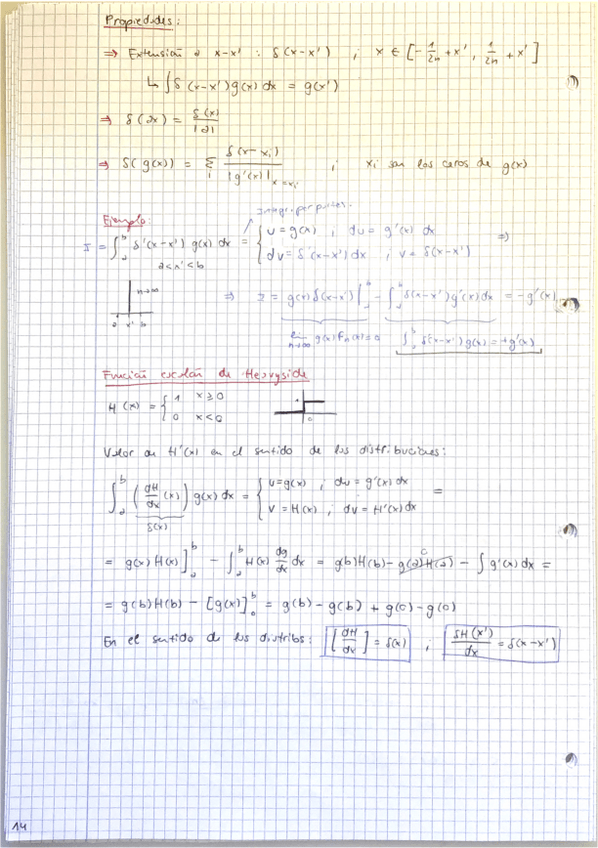 Propiedades:
⇒ Extensión a x-x' : δ(x-x') ; x ∈ [-1/2n + x', 1/2n + x']
↳ ∫δ(x-x')g(x)dx = g(x')
⇒ δ(ax) = δ(x)/|a|
⇒ δ(g(x)) = Σ_i δ(x-xi)/|g'(x)|_{x=xi} ; xi son los ceros de g(x)
Integr. por partes.
Ejemplo:
I = ∫_a^b δ'(x-x') g(x) dx = { u = g(x) ; du = g'(x) dx ⇒
a<x'<b
dv = δ'(x-x')dx ; v = δ(x-x')
n→∞
a x' b
⇒ I = g(x)δ(x-x')]_a^b - ∫_a^b δ(x-x')g'(x)dx = -g'(x)
lim n→∞ g(x)Fn(x)=0
∫_a^b δ(x-x')g(x) = +g'(x)
Función escalón de Heavyside
H(x) = { 1 x≥0
0 x<0
Valor de H'(x) en el sentido de las distribuciones:
∫_a^b (dH/dx (x)) g(x) dx = { u=g(x) ; du = g'(x) dx =
δ(x)
v = H(x) ; dv = H'(x)dx
= g(x)H(x)]_a^b - ∫_a^b H(x) dg/dx dx = g(b)H(b) - g(a)H(a) - ∫ g'(x) dx =
= g(b)H(b) - [g(x)]_0^b = g(b) - g(b) + g(0) - g(0)
En el sentido de las distribs: [dH/dx] = δ(x) ; δH(x')/dx = δ(x-x')
14